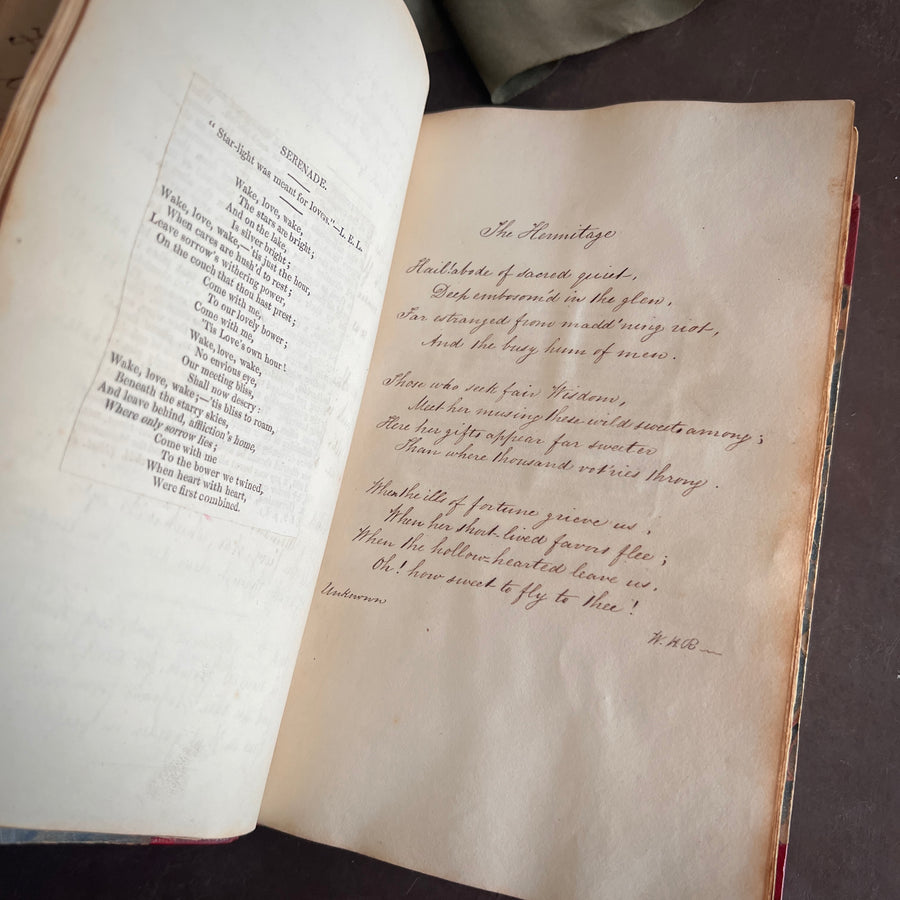 SERENADE.
"Star-light was meant for lovers."—L. E. L.
Wake, love, wake,
The stars are bright;
And on the lake,
Is silver bright;
Wake, love, wake,—'tis just the hour,
When cares are hush'd to rest;
Leave sorrow's withering power,
On the couch that thou hast prest;
Come with me,
To our lovely bower;
Come with me,
'Tis Love's own hour!
Wake, love, wake,
No envious eye,
Our meeting bliss,
Shall now descry:
Wake, love, wake;—'tis bliss to roam,
Beneath the starry skies,
And leave behind, affliction's home,
Where only sorrow lies;
Come with me
To the bower we twined,
When heart with heart,
Were first combined.
The Hermitage
Hail! abode of sacred quiet,
Deep embosom'd in the glen,
Far estranged from madd'ning riot,
And the busy hum of men.
Those who seek fair Wisdom,
Meet her musing these wild sweets among;
Here her gifts appear far sweeter
Than where thousand vot'ries throng.
When the ills of fortune grieve us,
When her short-lived favors flee;
When the hollow-hearted leave us,
Oh! how sweet to fly to thee!
Unknown
W. H. B